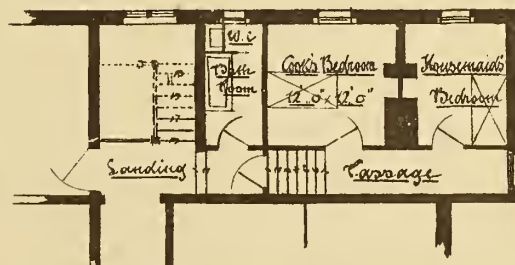 W.C
Bath
Room
Cook's Bedroom
12'.0" x 12'.0"
Housemaid's
Bedroom
Landing
Passage